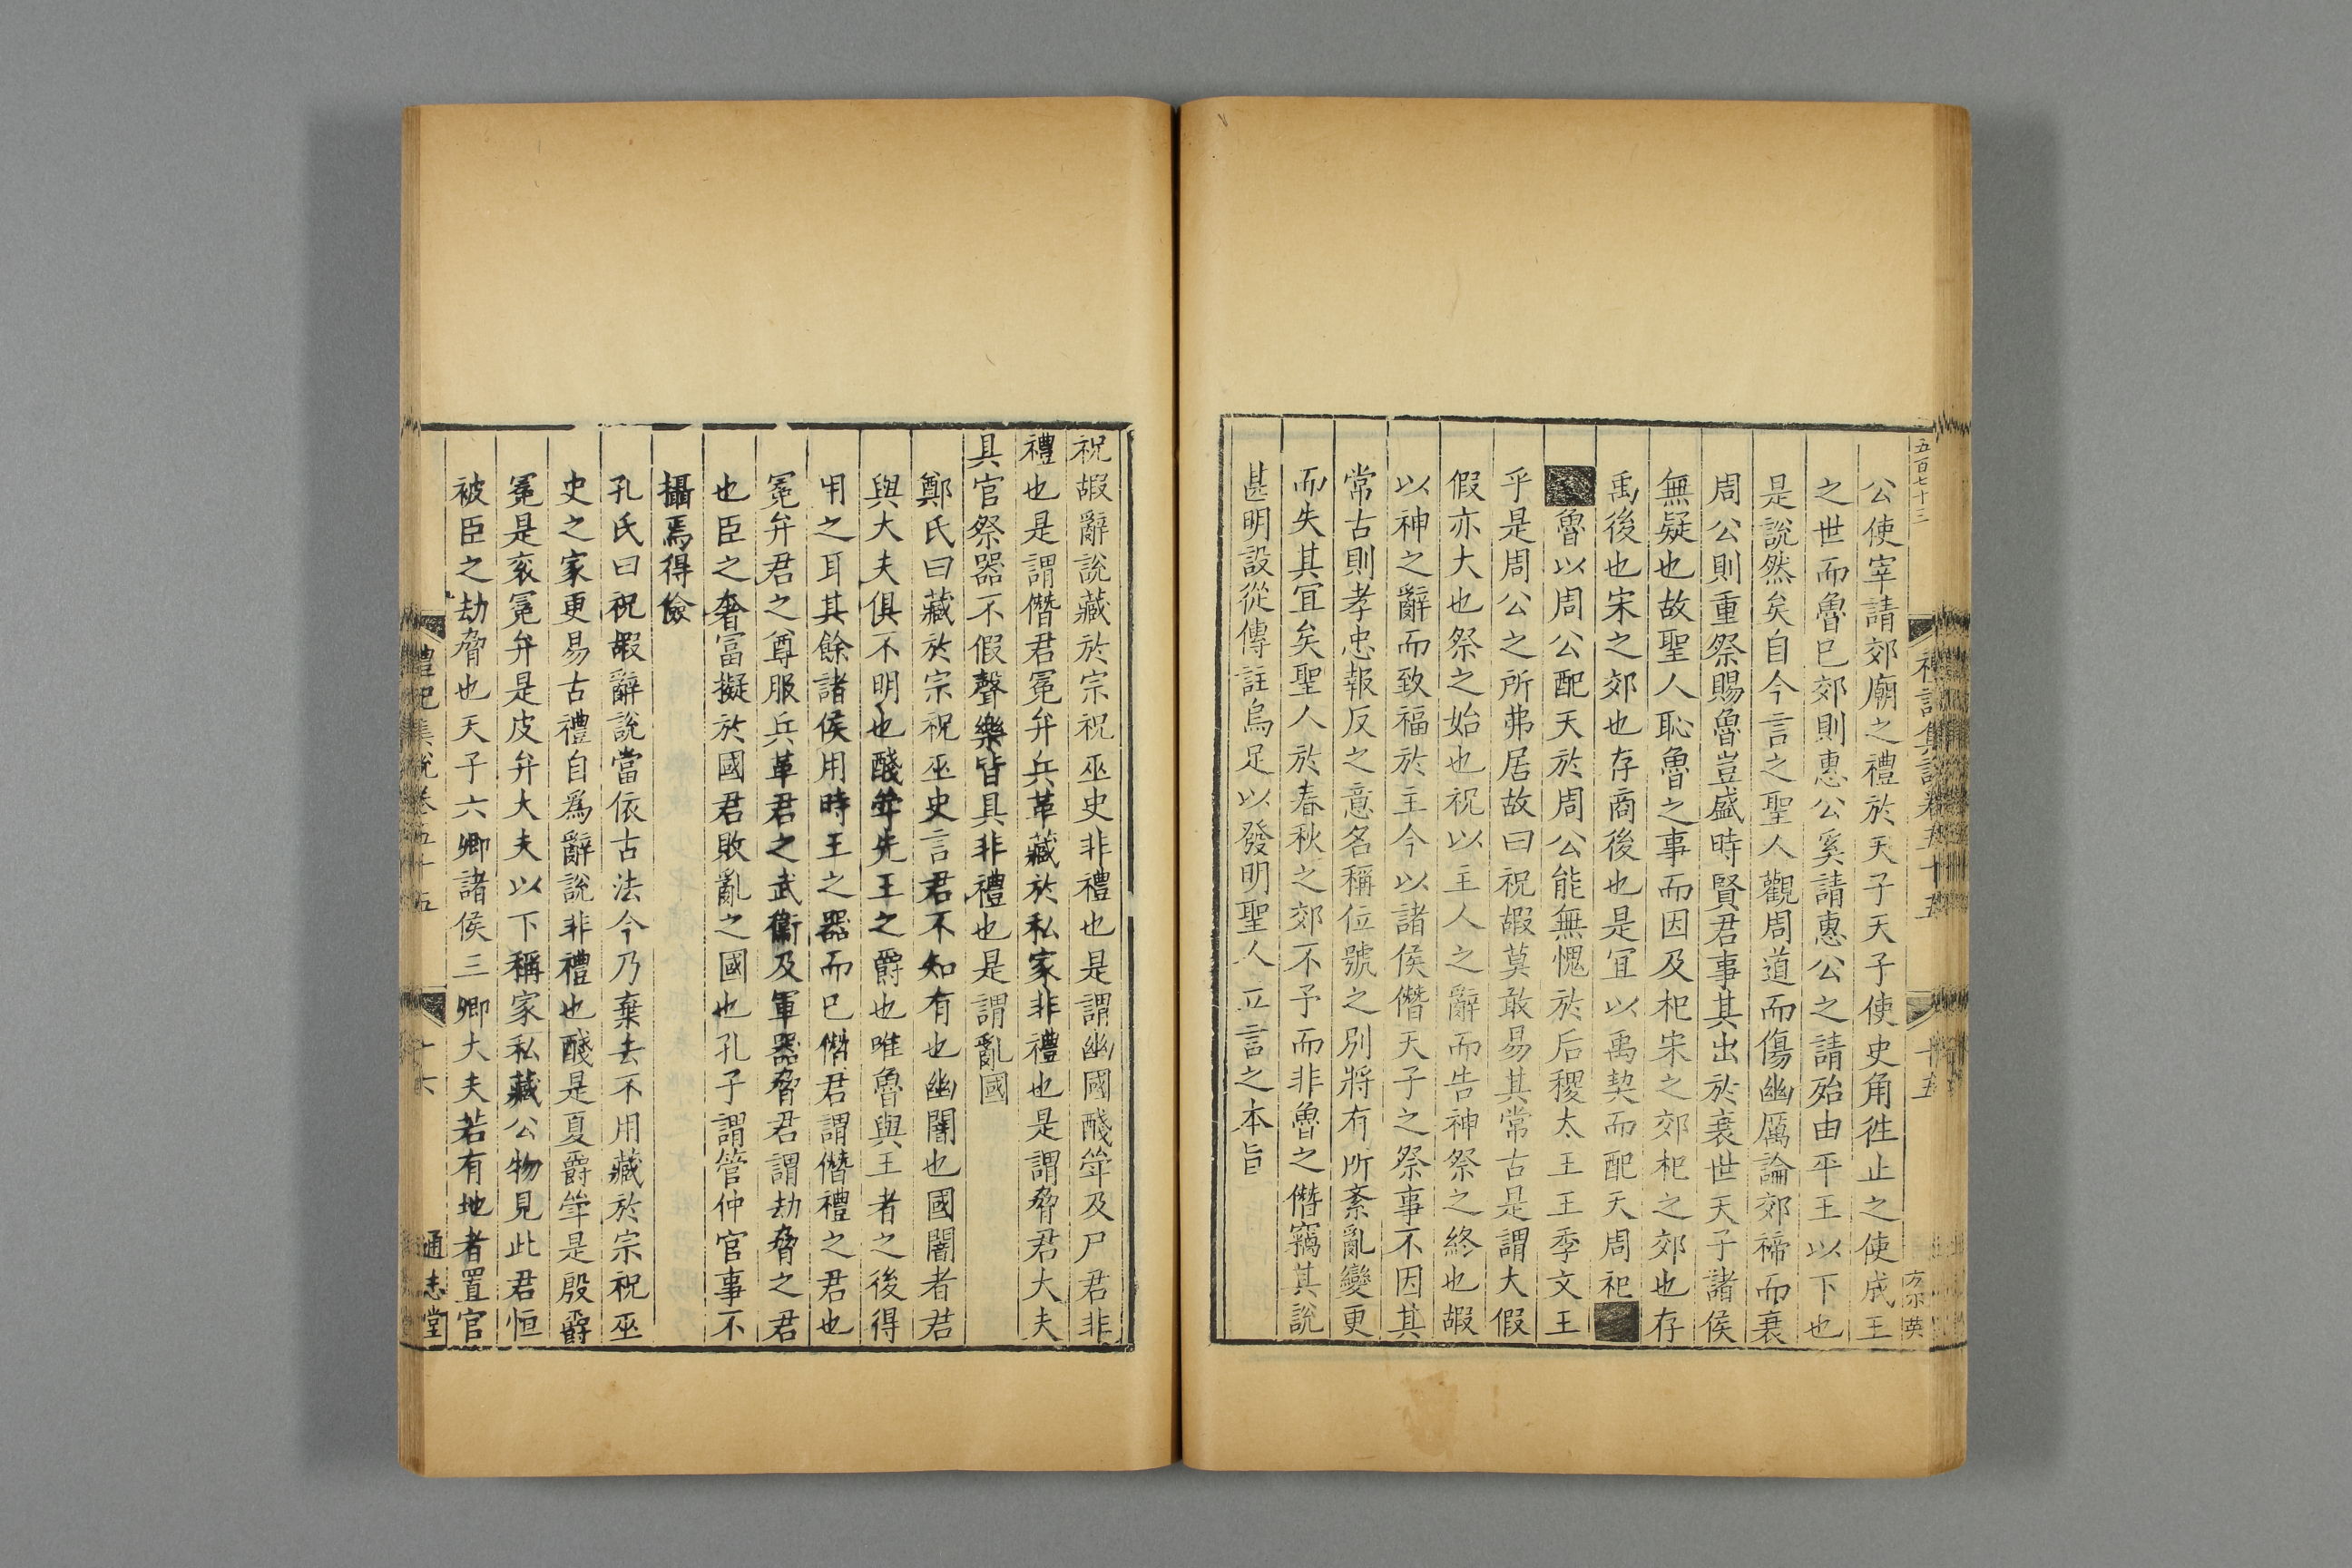 五百七十三
禮記集說卷五十五
十五
公使宰請郊廟之禮於天子天子使史角徃止之使成王
之世而魯已郊則惠公奚請惠公之請殆由平王以下也
是說然矣自今言之聖人觀周道而傷幽厲論郊禘而衰
周公則重祭賜魯豈盛時賢君事其出於衰世天子諸侯
無疑也故聖人恥魯之事而因及杞宋之郊杞之郊也存
禹後也宋之郊也存商後也是宜以禹契而配天周祀
魯以周公配天於周公能無愧於后稷太王王季文王
乎是周公之所弗居故曰祝嘏莫敢易其常古是謂大假
假亦大也祭之始也祝以主人之辭而告神祭之終也嘏
以神之辭而致福於主今以諸侯僭天子之祭事不因其
常古則孝忠報反之意名稱位號之別將有所紊亂變更
而失其宜矣聖人於春秋之郊不予而非魯之僭竊其說
甚明設從傳註烏足以發明聖人立言之本旨
祝嘏辭說藏於宗祝巫史非禮也是謂幽國醆斝及尸君非
禮也是謂僭君冕弁兵革藏於私家非禮也是謂脅君大夫
具官祭器不假聲樂皆具非禮也是謂亂國
鄭氏曰藏於宗祝巫史言君不知有也幽闇也國闇者君
與大夫俱不明也醆斝先王之爵也唯魯與王者之後得
用之耳其餘諸侯用時王之器而已僭君謂僭禮之君也
冕弁君之尊服兵革君之武衞及軍器脅君謂劫脅之君
也臣之奢富擬於國君敗亂之國也孔子謂管仲官事不
攝焉得儉
孔氏曰祝嘏辭說當依古法今乃棄去不用藏於宗祝巫
史之家更易古禮自為辭說非禮也醆是夏爵斝是殷爵
冕是衮冕弁是皮弁大夫以下稱家私藏公物見此君恒
被臣之劫脅也天子六卿諸侯三卿大夫若有地者置官
禮記集說卷五十五
十六
通志堂